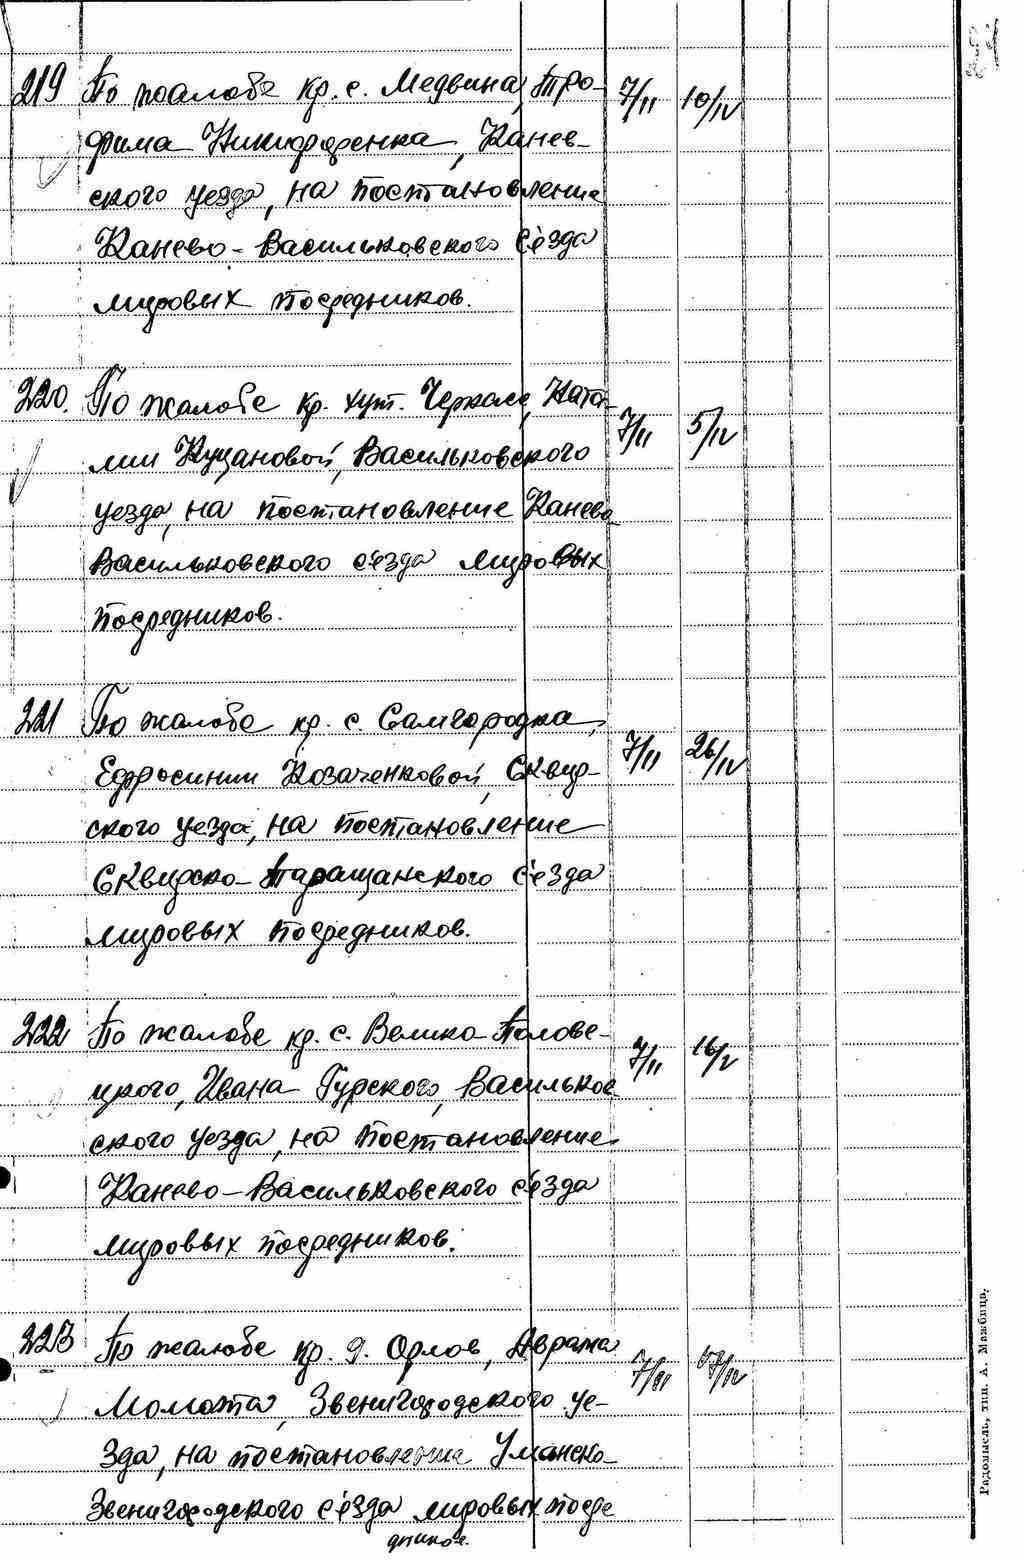 219 По жалобе кр. с. Медвина, Тро- 7/II 10/IV
фима Никифоренка, Канев-
ского уезда, на постановление
Канево-Васильковского с'езда
мировых посредников.
220. По жалобе кр. хут. Черкас, Ната- 7/II 5/IV
лии Куцановой, Васильковского
уезда, на постановление Канево-
Васильковского с'езда мировых
посредников.
221 По жалобе кр. с. Самгородка, 7/II 26/IV
Ефросинии Козаченковой, Сквир-
ского уезда, на постановление
Сквирско-Таращанского с'езда
мировых посредников.
222 По жалобе кр. с. Велико-Полове- 7/II 16/V
цкого, Ивана Гурского, Васильков-
ского уезда, на постановление
Канево-Васильковского с'езда
мировых посредников.
223 По жалобе кр. д. Орлов, Аврама
Момота, Звенигородского уе-
зда, на постановление Уманско-
Звенигородского с'езда мировых посре
дников.
Радомысль, тип. А. Мажбица.